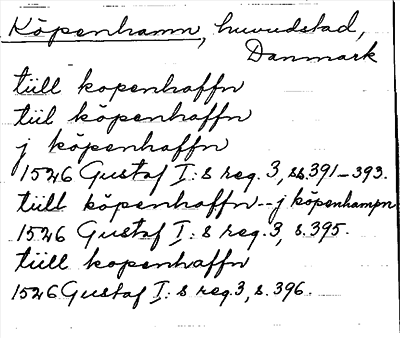 Köpenhamn, huvudstad,
Danmark
tiill kopenhaffn
tiil köpenhaffn
j köpenhaffn
1526 Gustaf I:s reg. 3, ss. 391-393.
tiill köpenhaffn -- j köpenhampn
1526 Gustaf I:s reg. 3, s. 395.
tiill kopenhaffn
1526 Gustaf I:s reg. 3, s. 396.